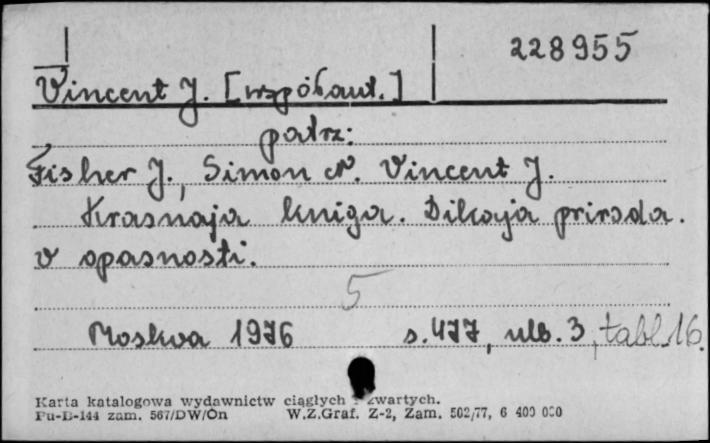 228955
Vincent J. [współaut.]
patrz:
Fisher J., Simon N. Vincent J.
Krasnaja kniga. Dikaja priroda.
v opasnosti.
5
Moskva 1976 s. 477, ulb. 3, tabl. 16.
Karta katalogowa wydawnictw ciągłych i zwartych.
Pu-B-144 zam. 567/DW/On W.Z.Graf. Z-2, Zam. 502/77, 6 400 000